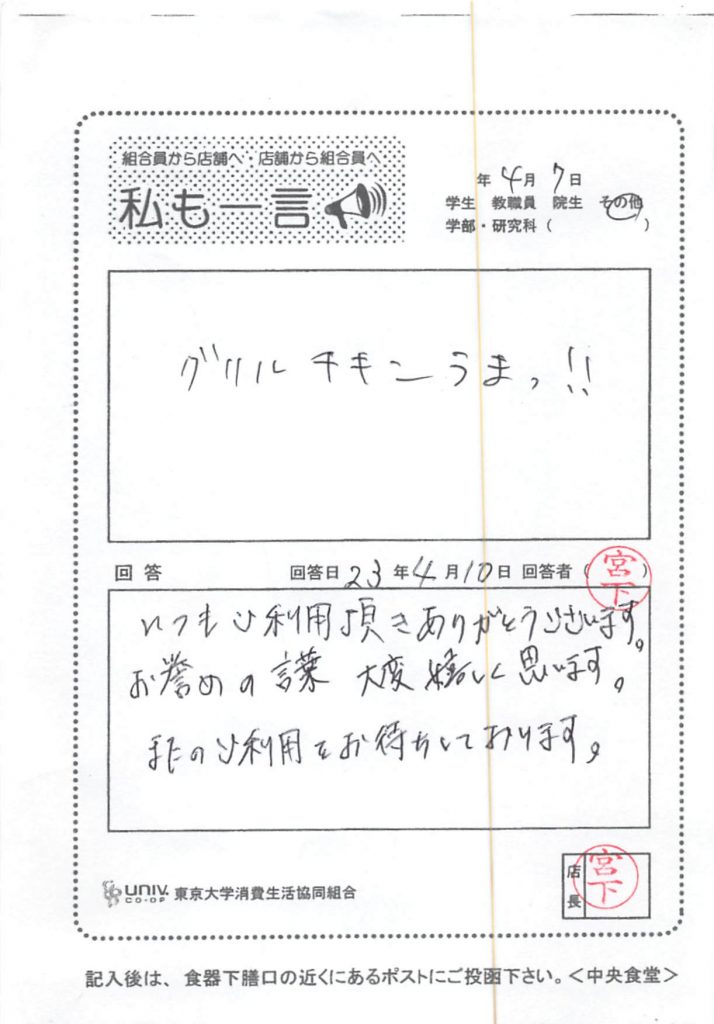 組合員から店舗へ・店舗から組合員へ
私も一言
年 4月 7日
学生 教職員 院生 その他
学部・研究科( )
グリルチキンうまっ!!
回答 回答日 23年4月10日 回答者(宮下)
いつもご利用頂きありがとうございます。
お誉めの言葉 大変嬉しく思います。
またのご利用をお待ちしております。
UNIV. CO-OP 東京大学消費生活協同組合
店長 宮下
記入後は、食器下膳口の近くにあるポストにご投函下さい。<中央食堂>